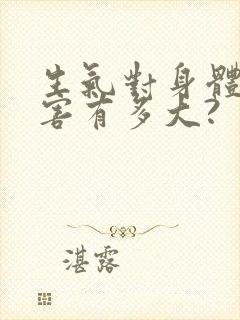 生氣對身體
害有多大?
湛露